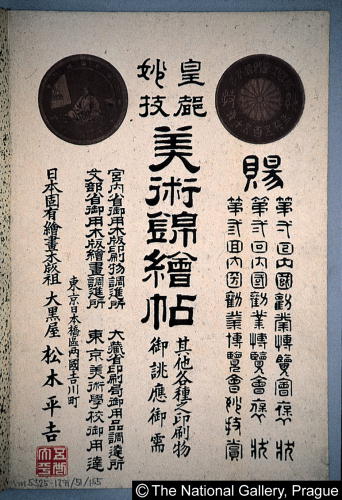 賜
第一回内國勸業博覽會褒状
第二回内國勸業博覽會褒状
第三回内國勸業博覽會妙技賞
皇都
妙技
美術錦繪帖
其他各種ノ印刷物
御誂應御需
宮内省御用木版印刷物調進所
大藏省印刷局御用品調達所
文部省御用木版繪畫調進所
東京美術學校御用達
東京日本橋區兩國吉川町
日本固有繪畫木版祖 大黒屋 松木平吉
© The National Gallery, Prague